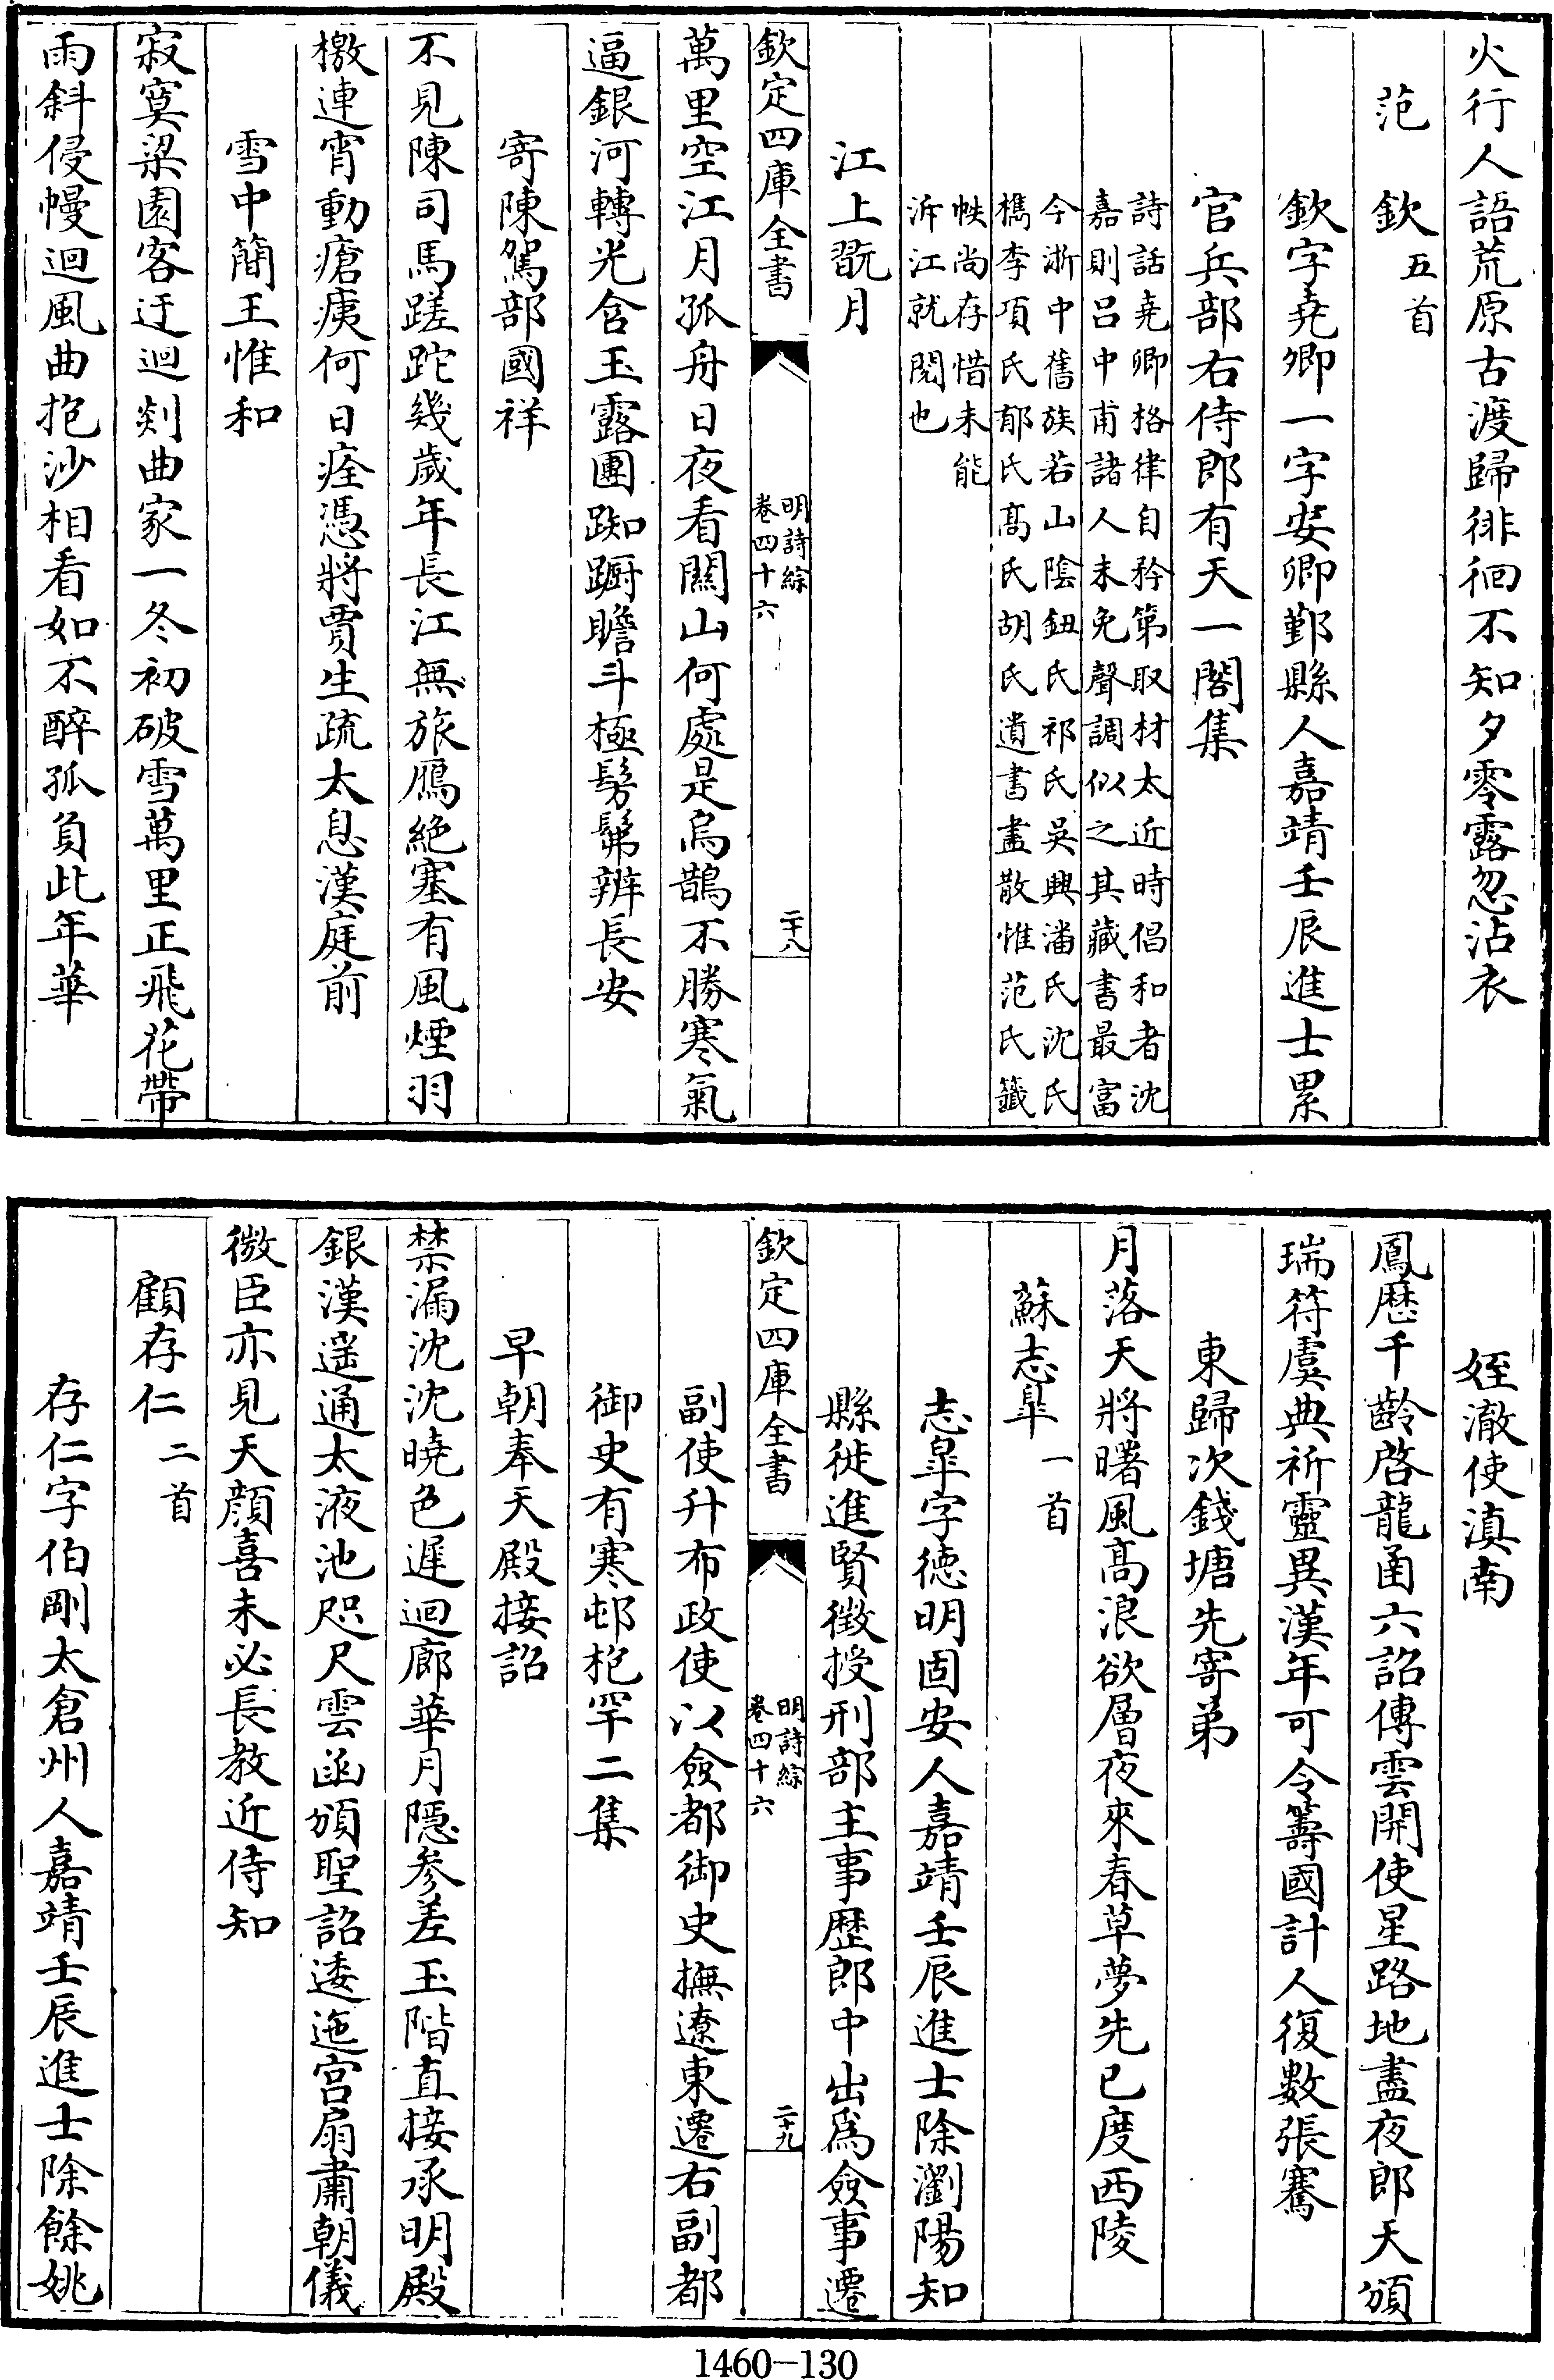 火行人語荒原古渡歸徘徊不知夕零露忽沾衣
范欽五首
欽字堯卿一字安卿鄞縣人嘉靖壬辰進士累
官兵部右侍郎有天一閣集
詩話堯卿格律自矜第取材太近時倡和者沈
嘉則呂中甫諸人未免聲調似之其藏書最富
今浙中舊族若山陰鈕氏祁氏吳興潘氏沈氏
檇李項氏郁氏高氏胡氏遺書盡散惟范氏籤
帙尚存惜未能
泝江就閱也
江上翫月
欽定四庫全書
明詩綜
卷四十六
二十八
萬里空江月孤舟日夜看關山何處是烏鵲不勝寒氣
逼銀河轉光含玉露團踟蹰瞻斗極髣髴辨長安
寄陳駕部國祥
不見陳司馬蹉跎幾歲年長江無旅鴈絶塞有風煙羽
檄連宵動瘡痍何日痊憑將賈生疏太息漢庭前
雪中簡王惟和
寂寞梁園客迂迴剡曲家一冬初破雪萬里正飛花帶
雨斜侵幔迴風曲抱沙相看如不醉孤負此年華
姪澈使滇南
鳳歴千齡啓龍函六詔傳雲開使星路地盡夜郎天頒
瑞符虞典祈靈異漢年可令籌國計人復數張騫
東歸次錢塘先寄弟
月落天將曙風高浪欲層夜來春草夢先已度西陵
蘇志皋一首
志皋字德明固安人嘉靖壬辰進士除瀏陽知
縣徙進賢徵授刑部主事歴郎中出爲僉事遷
欽定四庫全書
明詩綜
卷四十六
二十九
副使升布政使以僉都御史撫遼東遷右副都
御史有寒邨枹罕二集
早朝奉天殿接詔
禁漏沈沈曉色遲迴廊華月隱參差玉階直接承明殿
銀漢遥通太液池咫尺雲函頒聖詔逶迤宫扇肅朝儀
微臣亦見天顔喜未必長教近侍知
顧存仁二首
存仁字伯剛太倉州人嘉靖壬辰進士除餘姚
1460-130